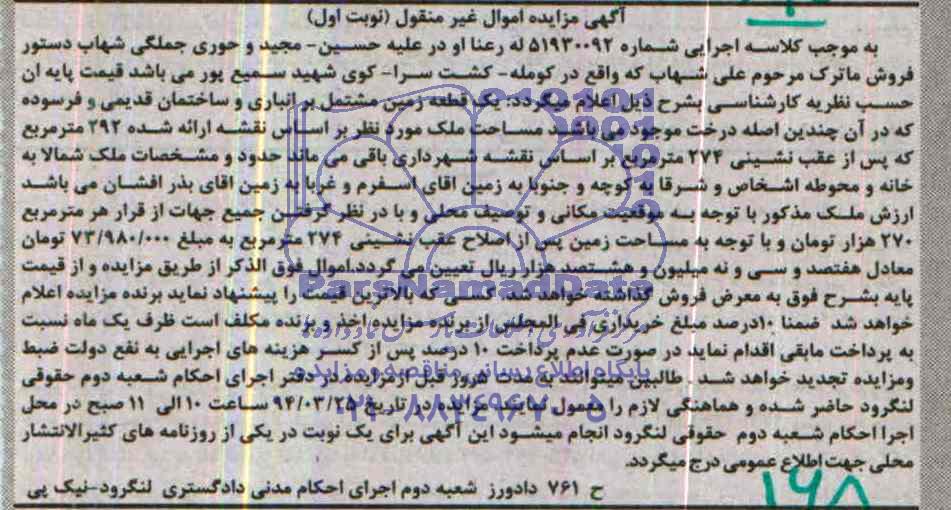 آگهی مزایده اموال غیر منقول (نوبت اول)
به موجب کلاسه اجرایی شماره ۵۱۹۳۰۰۹۲ له رعنا او در علیه حسین- مجید و حوری جملگی شهاب دستور
فروش ماترک مرحوم علی شهاب که واقع در کومله- کشت سرا- کوی شهید سمیع پور می باشد قیمت پایه ان
حسب نظریه کارشناسی بشرح ذیل اعلام میگردد: یک قطعه زمین مشتمل بر انباری و ساختمان قدیمی و فرسوده
که در آن چندین اصله درخت موجود می باشد مساحت ملک مورد نظر بر اساس نقشه ارائه شده ۲۹۲ مترمربع
که پس از عقب نشینی ۲۷۴ مترمربع بر اساس نقشه شهرداری باقی می ماند حدود و مشخصات ملک شمالا به
خانه و محوطه اشخاص و شرقا به کوچه و جنوبا به زمین اقای اسفرم و غربا به زمین اقای بذر افشان می باشد
ارزش ملک مذکور با توجه به موقعیت مکانی و توصیف محلی و با در نظر گرفتن جمیع جهات از قرار هر مترمربع
۲۷۰ هزار تومان و با توجه به مساحت زمین پس از اصلاح عقب نشینی ۲۷۴ مترمربع به مبلغ ۷۳/۹۸۰/۰۰۰ تومان
معادل هفتصد و سی و نه میلیون و هشتصد هزار ریال تعیین می گردد.اموال فوق الذکر از طریق مزایده و از قیمت
پایه بشرح فوق به معرض فروش گذاشته خواهد شد. کسی که بالاترین قیمت را پیشنهاد نماید برنده مزایده اعلام
خواهد شد ضمنا ۱۰درصد مبلغ خریداری فی المجلس از برنده مزایده اخذ و برنده مکلف است ظرف یک ماه نسبت
به پرداخت مابقی اقدام نماید در صورت عدم پرداخت ۱۰ درصد پس از کسر هزینه های اجرایی به نفع دولت ضبط
ومزایده تجدید خواهد شد . طالبین میتوانند به مدت ۵روز قبل ازمزایده در دفتر اجرای احکام شعبه دوم حقوقی
لنگرود حاضر شده و هماهنگی لازم را معمول نمایند. مزایده در تاریخ ۹۴/۰۳/۲۵ ساعت ۱۰ الی ۱۱ صبح در محل
اجرا احکام شعبه دوم حقوقی لنگرود انجام میشود این آگهی برای یک نوبت در یکی از روزنامه های کثیرالانتشار
محلی جهت اطلاع عمومی درج میگردد.
ح ۷۶۱ دادورز شعبه دوم اجرای احکام مدنی دادگستری لنگرود-نیک پی
ParsNamadData
پایگاه اطلاع رسانی مناقصه و مزایده
۰۲۱-۸۸۳۴۹۶۷۰-۵
۱۶۸